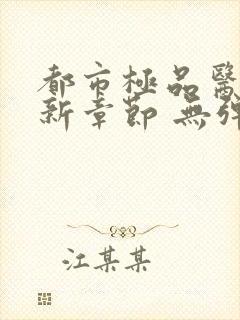 都市極品醫
新章節 無
江某某